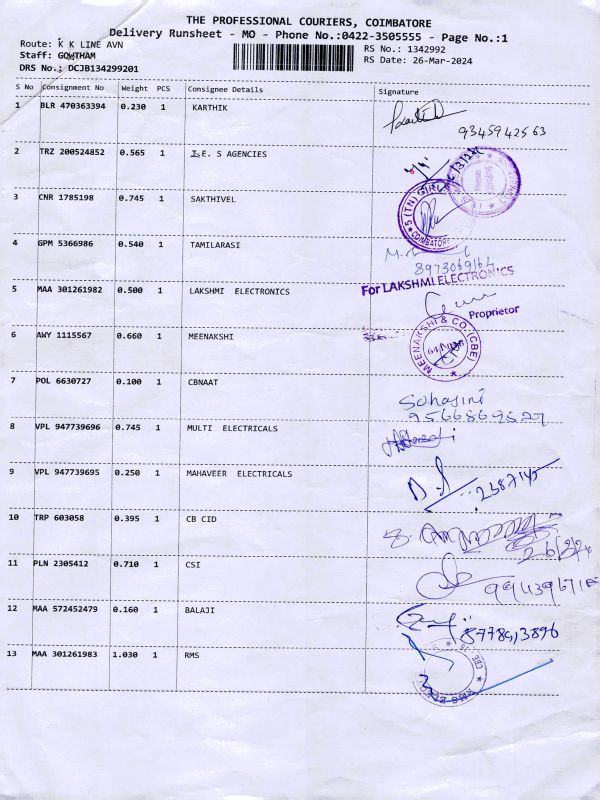 THE PROFESSIONAL COURIERS, COIMBATORE
Delivery Runsheet - MO - Phone No.:0422-3505555 - Page No.:1
Route: K K LINE AVN
RS No.: 1342992
Staff: GOWTHAM
RS Date: 26-Mar-2024
DRS No.: DCJB134299201
S No Consignment No Weight PCS Consignee Details Signature
1 BLR 470363394 0.230 1 KARTHIK
9345942563
2 TRZ 200524852 0.565 1 I. E. S AGENCIES
3 CNR 1785198 0.745 1 SAKTHIVEL
COIMBATORE
4 GPM 5366986 0.540 1 TAMILARASI
8973069164
5 MAA 301261982 0.500 1 LAKSHMI ELECTRONICS
For LAKSHMI ELECTRONICS
Proprietor
6 AWY 1115567 0.660 1 MEENAKSHI
MEENAKSHI & CO. (CBE)
7 POL 6630727 0.100 1 CBNAAT
Sohasini
9566869527
8 VPL 947739696 0.745 1 MULTI ELECTRICALS
9 VPL 947739695 0.250 1 MAHAVEER ELECTRICALS
10 TRP 603058 0.395 1 CB CID
11 PLN 2305412 0.710 1 CSI
12 MAA 572452479 0.160 1 BALAJI
13 MAA 301261983 1.030 1 RMS